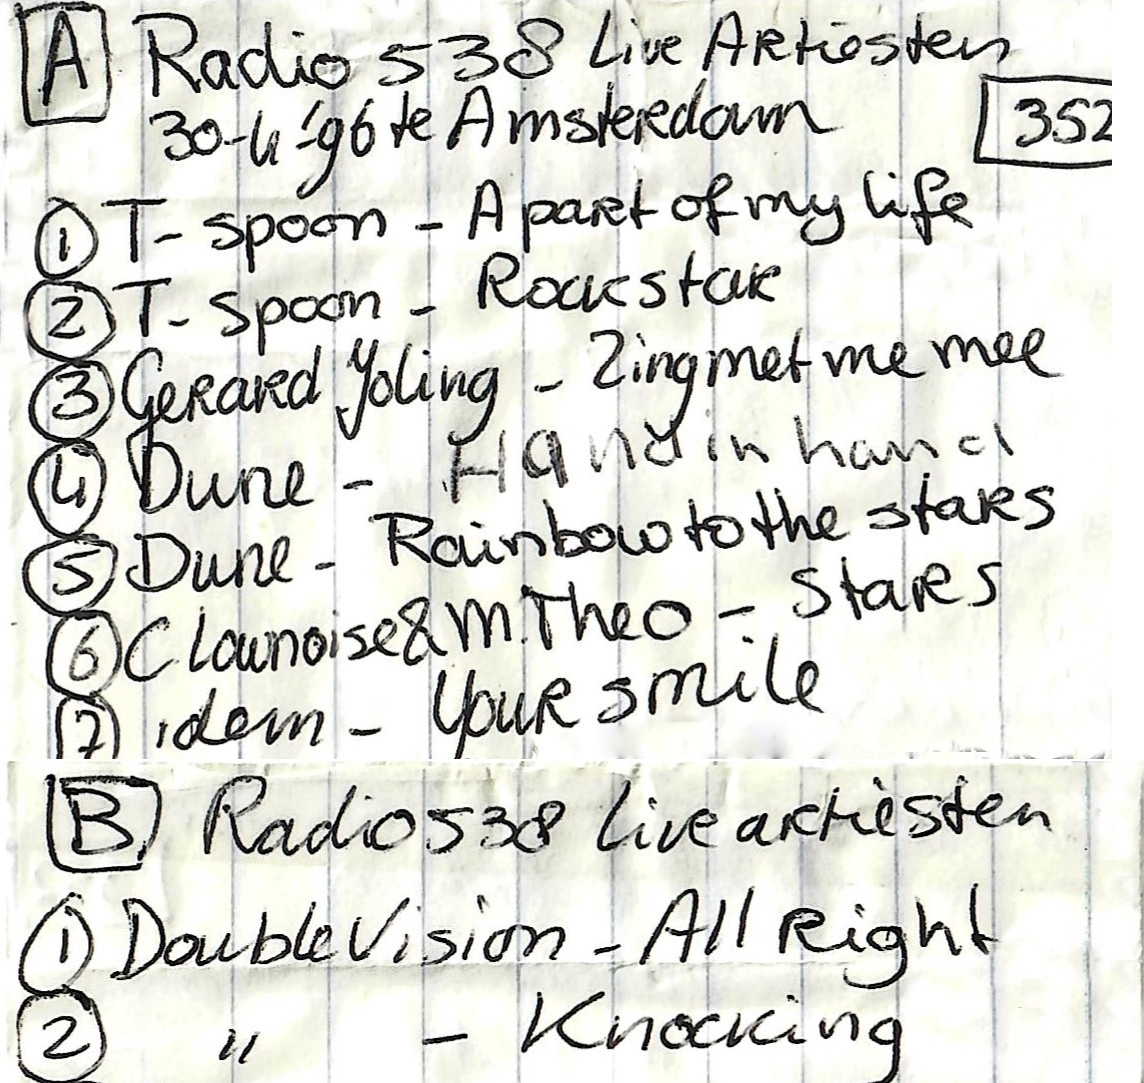 A Radio 538 Live Artiesten
30-4-'96 te Amsterdam
352
1 T-spoon - A part of my life
2 T-spoon - Rockstar
3 Gerard Yoling - Zing met me mee
4 Dune - Hand in hand
5 Dune - Rainbow to the stars
6 Clownoise & M. Theo - Stars
7 idem - Your smile
B Radio 538 live artiesten
1 Double Vision - All Right
2 " - Knocking